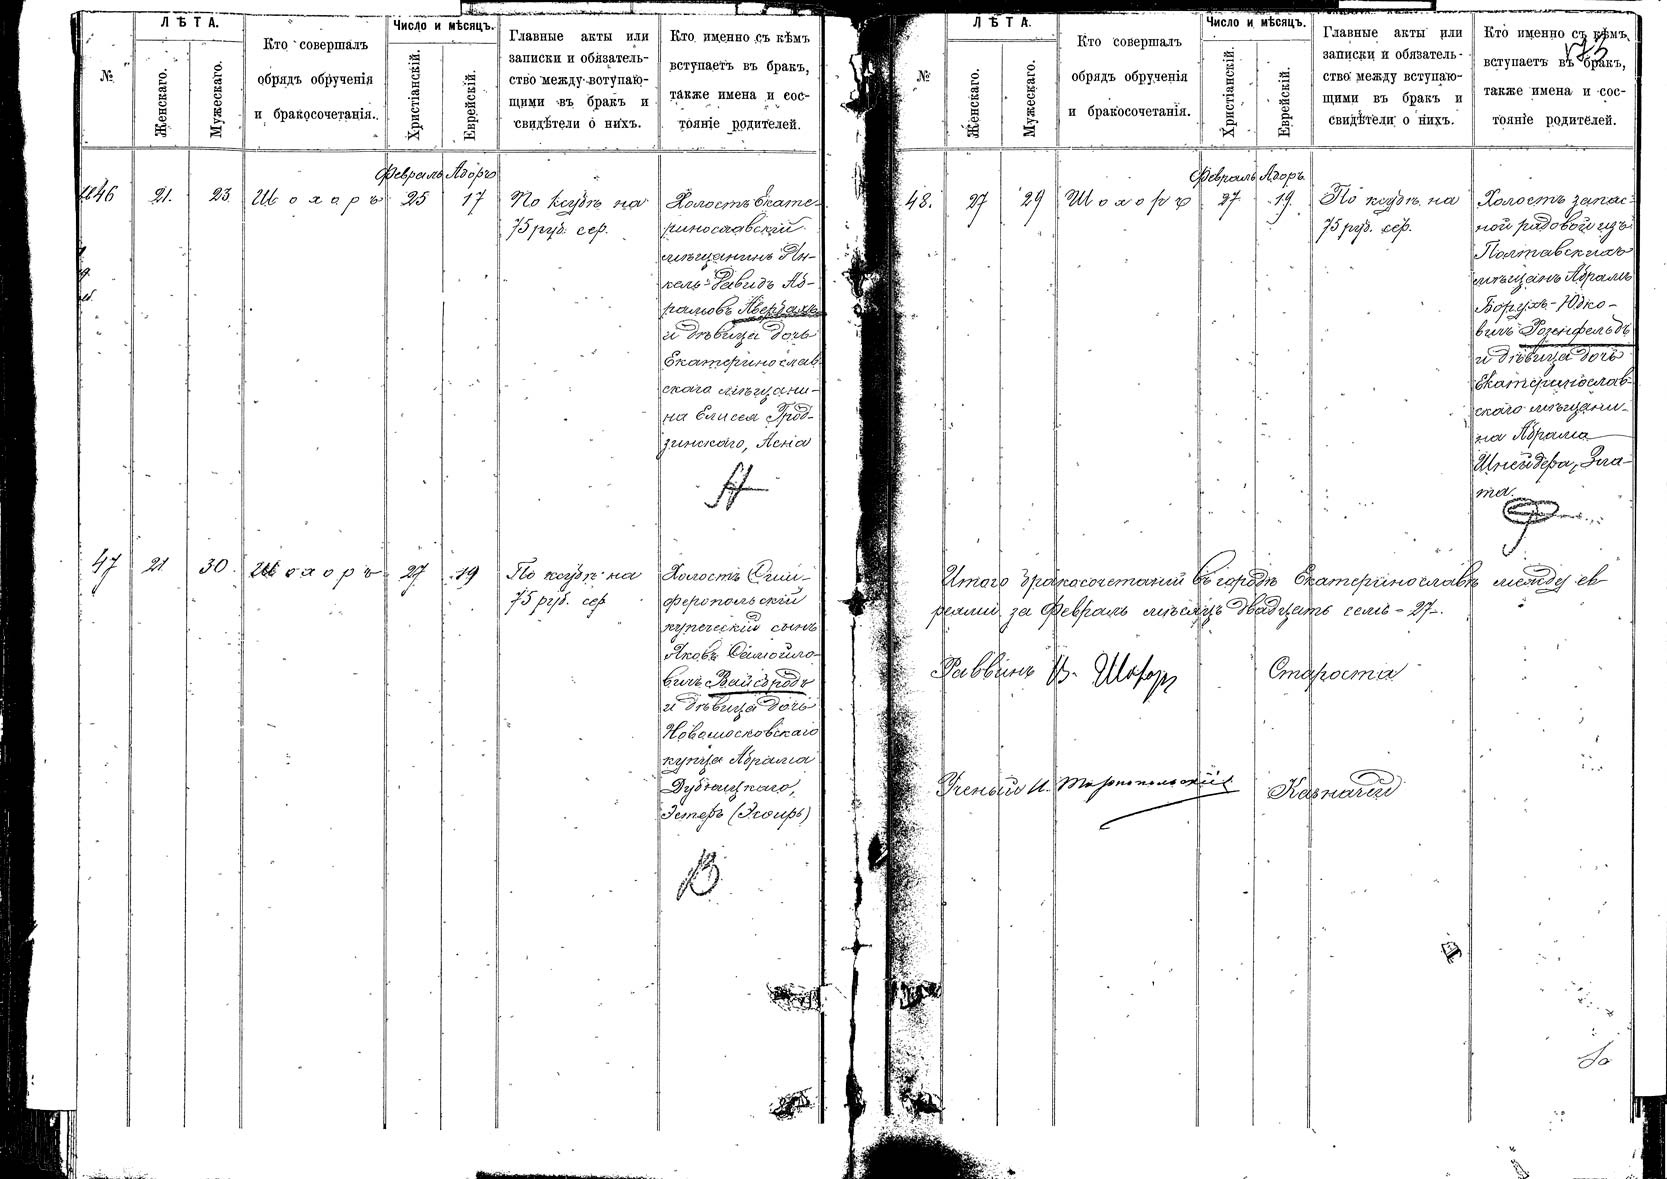 №
ЛѢТА.
Женскаго.
Мужескаго.
Кто совершалъ
обрядъ обрученія
и бракосочетанія.
Число и мѣсяцъ.
Христіанскій.
Еврейскій.
Главные акты или
записки и обязатель-
ство между вступаю-
щими въ бракъ и
свидѣтели о нихъ.
Кто именно съ кѣмъ
вступаетъ въ бракъ,
также имена и сос-
тояніе родителей.
Февраль Адоръ
46 21. 23. Шохоръ 25 17
По ксубѣ на
75 руб. сер.
Холостъ Екате-
ринославскій
мѣщанинъ Ян-
кель-Давидъ Аб-
рамовъ Авербахъ
и дѣвица дочь
Екатеринослав
скаго мѣщани-
на Елисея Грод-
зинскаго, Асна
47 21 30. Шохоръ 27 19
По ксубѣ на
75 руб. сер
Холостъ Сим-
феропольскій
купеческій сынъ
Яковъ Самойло-
вичъ Вайсбродъ
и дѣвица дочь
Новомосковскаго
купца Абрама
Дубницкаго,
Эстеръ (Эсѳирь)
№
ЛѢТА.
Женскаго.
Мужескаго.
Кто совершалъ
обрядъ обрученія
и бракосочетанія.
Число и мѣсяцъ.
Христіанскій.
Еврейскій.
Главные акты или
записки и обязатель-
ство между вступаю-
щими въ бракъ и
свидѣтели о нихъ.
Кто именно съ кѣмъ
вступаетъ въ бракъ,
также имена и сос-
тояніе родителей.
Февраль Адоръ
48. 27 29 Шохоръ 27 19
По ксубѣ на
75 руб. сер.
Холостъ запас-
ной рядовой изъ
Полтавскихъ
мѣщанъ Абрамъ
Борухъ-Юдко-
вичъ Розенфельдъ
и дѣвица дочь
Екатеринослав-
скаго мѣщани-
на Абрама
Шнейдера, Зла-
та.
Итого бракосочетаній въ городѣ Екатеринославѣ между ев
реями за Февраль мѣсяцъ двадцать семь - 27 -.
Раввинъ В. Шохоръ Староста
Ученый И. Тарнопольскій Казначей